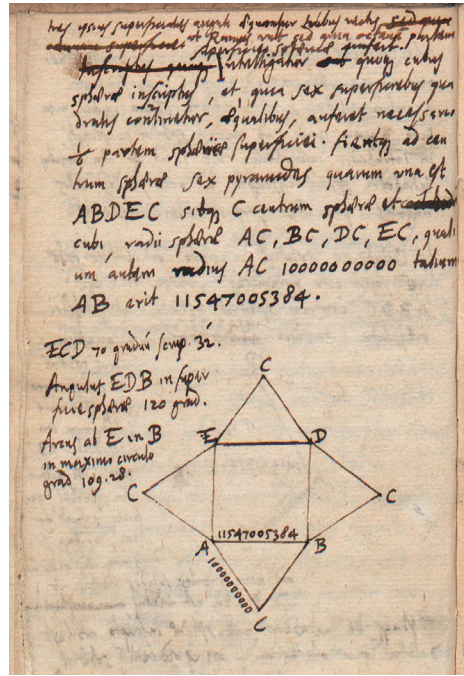 tres ipsius superficiales anguli æquantur tribus rectis sed quia
ut Ramus vult sed quia octava partem
superficiei sphæricæ aufert.
Inscriptus intelligatur quoq cubus
sphæræ inscriptus, et quia sex superficiebus qua
dratis continetur, æqualibus, aufert necessario
1/6 partem sphæricæ superficiei. fiantq ad cen
trum sphæræ sex pyramides quarum una est
ABDEC sitq C centrum sphæræ et
cubi, radii sphæræ AC, BC, DC, EC, quali
um autem radius AC 10000000000 talium
AB erit 11547005384.
ECD 70 graduū scrup. 32.
Angulus EDB in super
ficie sphæræ 120 grad.
Arcus ab E in B
in maximo circulo
grad 109.28.
C
E D
C C
11547005384
A B
10000000000
C